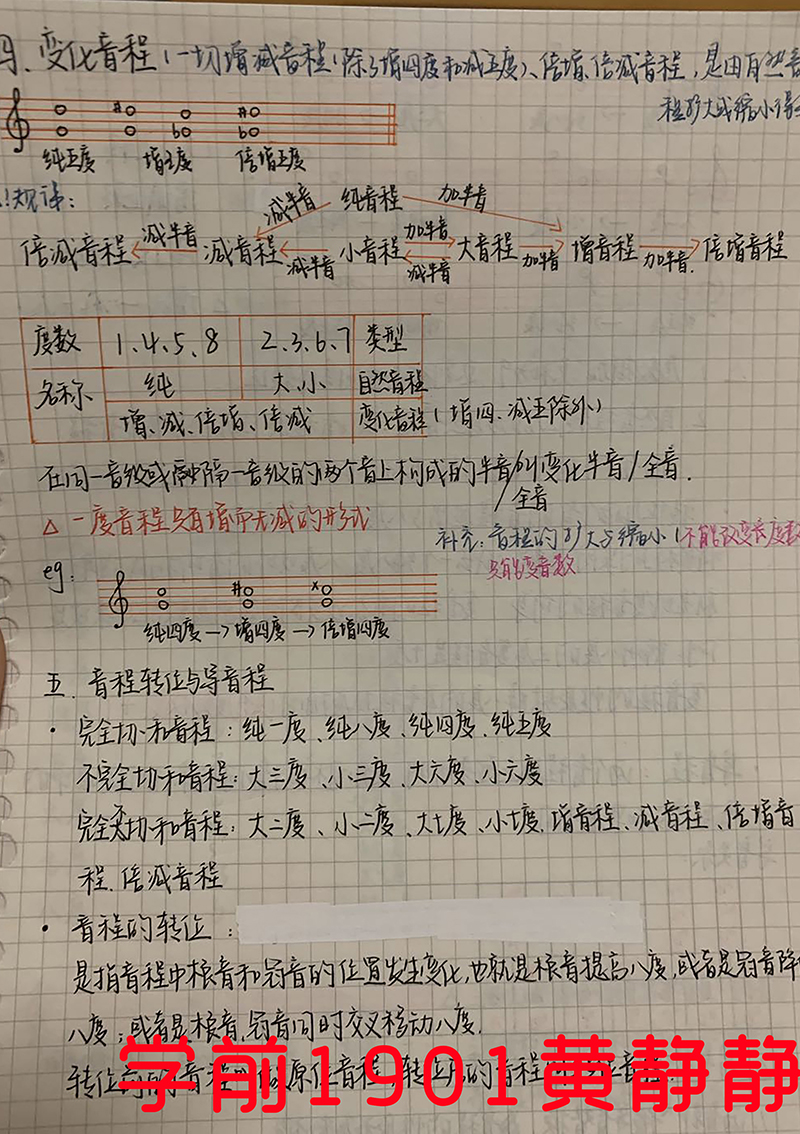 四、变化音程(一切增减音程(除了增四度和减五度)、倍增、倍减音程,是由自然音
程扩大或缩小得
纯五度 增五度 倍增五度
规律:
减半音 纯音程 加半音
倍减音程 减半音 减音程 减半音 小音程 加半音 减半音 大音程 加半音 增音程 加半音 倍增音程
度数 1、4、5、8 2、3、6、7 类型
名称 纯 大、小 自然音程
增、减、倍增、倍减 变化音程(增四、减五除外)
在同一音级或隔一音级的两个音上构成的半音/叫变化半音/全音.
/全音
△一度音程只有增而无减的形式
补充:音程的扩大与缩小(不能改变度数
只能变音数
eg:
纯四度→增四度→倍增四度
五、音程转位与导音程
·完全协和音程:纯一度、纯八度、纯四度、纯五度
不完全协和音程:大三度、小三度、大六度、小六度
完全不协和音程:大二度、小二度、大七度、小七度、增音程、减音程、倍增音
程、倍减音程
·音程的转位:
是指音程中根音和冠音的位置发生变化,也就是根音提高八度,或者是冠音降
八度;或者是根音、冠音同时交叉移动八度.
转位前的音程 原位音程,转位后的音程
学前1901黄静静